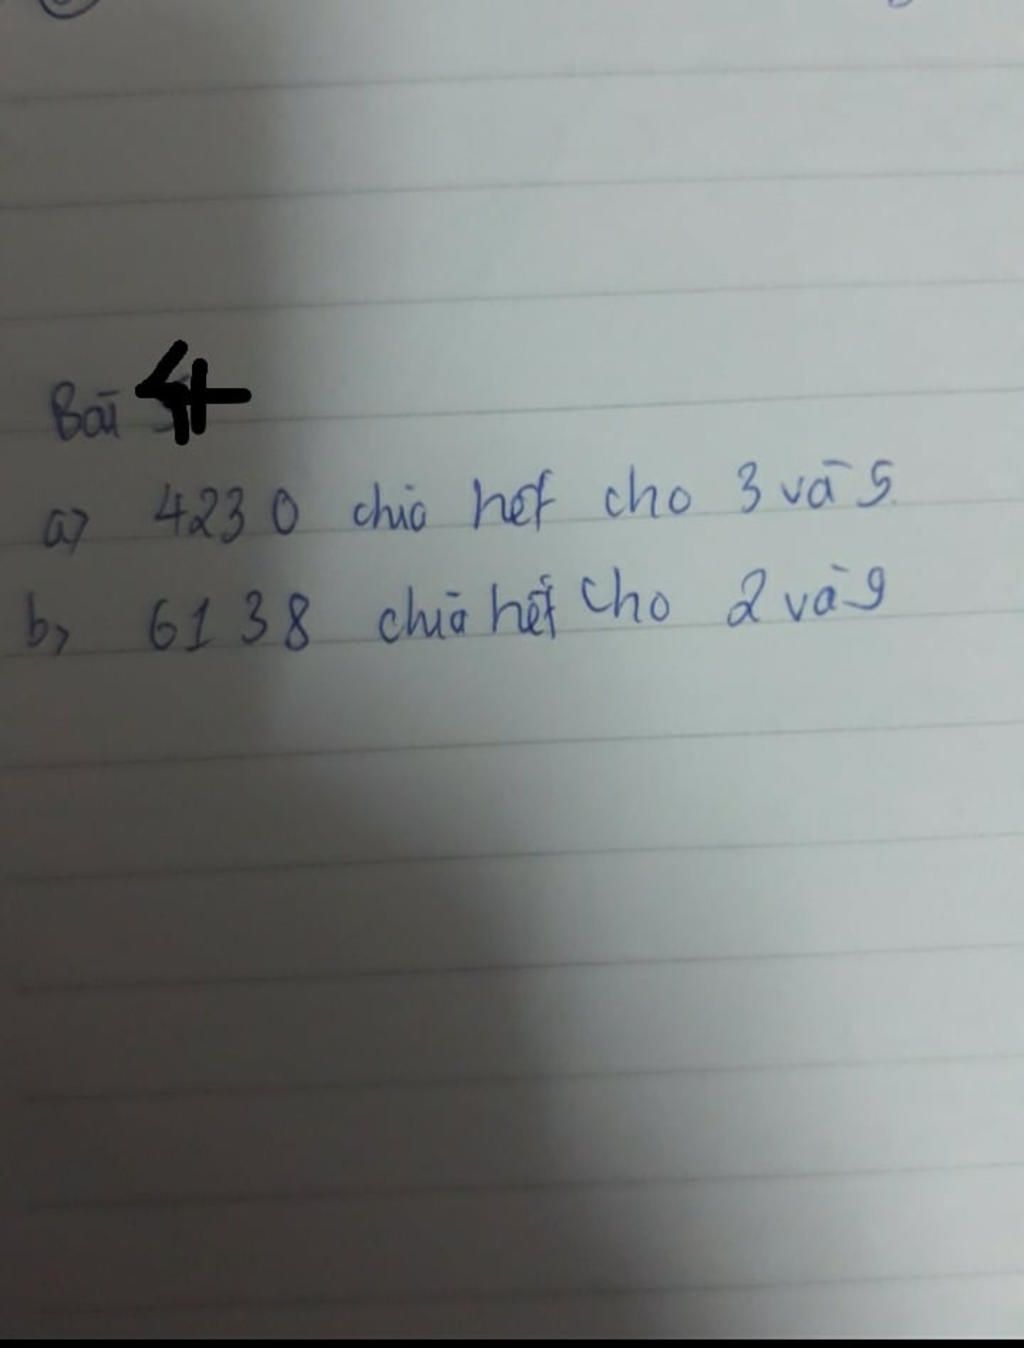 Bài 4
a) 4230 chia hết cho 3 và 5
b) 6138 chia hết cho 2 và 9